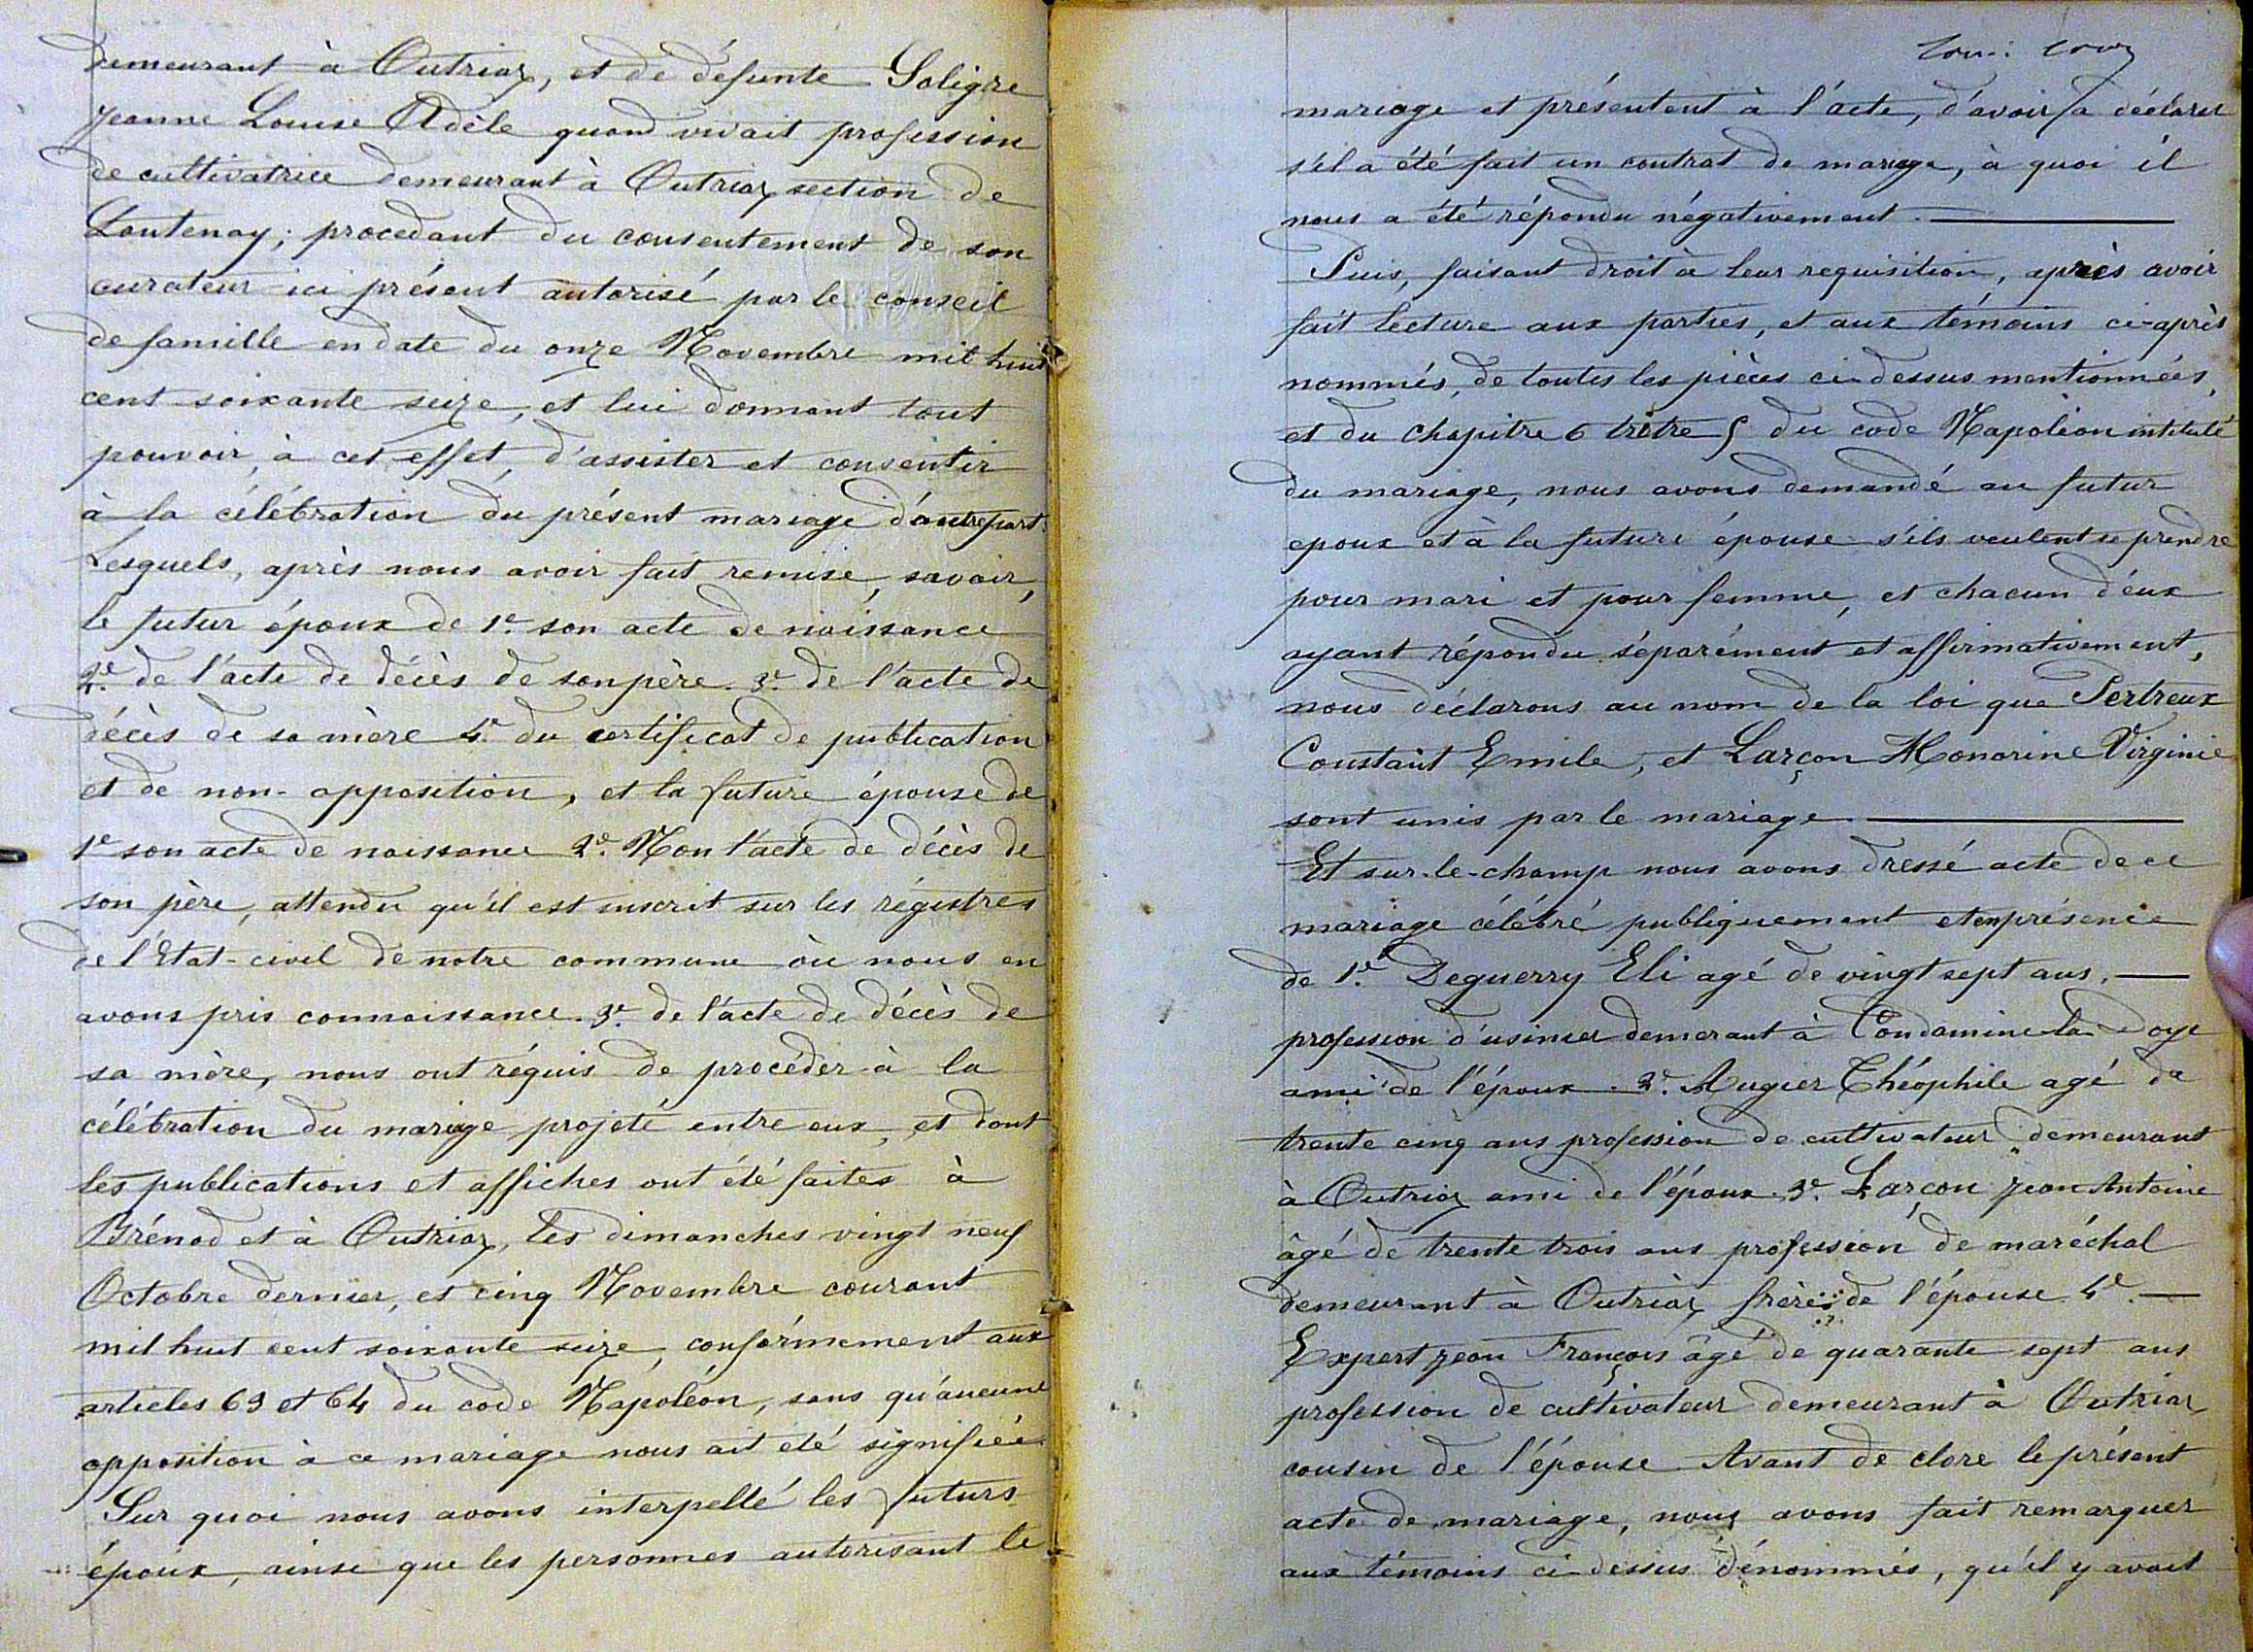 demeurant à Outriaz, et de défunte Soligre
Jeanne Louise Adèle quand vivait profession
de cultivatrice demeurant à Outriaz section de
Lantenay; procedant du consentement de son
curateur ici présent autorisé par le conseil
de famille en date du onze Novembre mil huit
cent soixante seize, et lui donnant tout
pouvoir, à cet effet, d'assister et consentir
à la célébration du présent mariage d'autre part.
Lesquels, après nous avoir fait remise, savoir,
le futur époux de 1e. son acte de naissance
2e. de l'acte de décès de son père. 3e. de l'acte de
décès de sa mère 4e. du certificat de publication
et de non-opposition, et la future épouse de
1e son acte de naissance 2e. Non l'acte de décès de
son père, attendu qu'il est inscrit sur les régistres
de l'Etat-civil de notre commune où nous en
avons pris connaissance. 3e. de l'acte de décès de
sa mère, nous ont réquis de procéder à la
célébration du mariage projeté entre eux, et dont
les publications et affiches ont été faites à
Brénod et à Outriaz, les dimanches vingt neuf
Octobre dernier, et cinq Novembre courant
mil huit cent soixante seize, conformément aux
articles 63 et 64 du code Napoléon, sans qu'aucune
opposition à ce mariage nous ait été signifiée
Sur quoi nous avons interpellé les futurs
époux, ainsi que les personnes autorisant le
mariage et présentent à l'acte, d'avoir à déclarer
s'il a été fait un contrat de mariage, à quoi il
nous a été répondu négativement.
Puis, faisant droit à leur requisition, après avoir
fait lecture aux parties, et aux témoins ci-après
nommés, de toutes les pièces ci-dessus mentionnées,
et du chapitre 6 tritre 5 du code Napoléon intitulé
du mariage, nous avons demandé au futur
epoux et à la future épouse s'ils veulent se prendre
pour mari et pour femme, et chacun d'eux
ayant répondu séparément et affirmativement,
nous déclarons au nom de la loi que Pertreux
Constant Emile, et Larçon Honorine Virginie
sont unis par le mariage
Et sur-le-champ nous avons dressé acte de ce
mariage célébré publiquement et en présence
de 1e. Deguerry Eli agé de vingt sept ans,
profession d'usinier demerant à Condamine-la-Doye
ami de l'époux. 2e. Augier Théophile agé de
trente cinq ans profession de cultivateur demeurant
à Outriaz ami de l'époux. 3e. Larçon Jean Antoine
âgé de trente trois ans profession de maréchal
demeurant à Outriaz frère de l'épouse 4e.
Expert Jean François âgé de quarante sept ans
profession de cultivateur demeurant à Outriaz
cousin de l'épouse. Avant de clore le présent
acte de mariage, nous avons fait remarquer
aux témoins ci-dessus dénommés, qu'il y avait